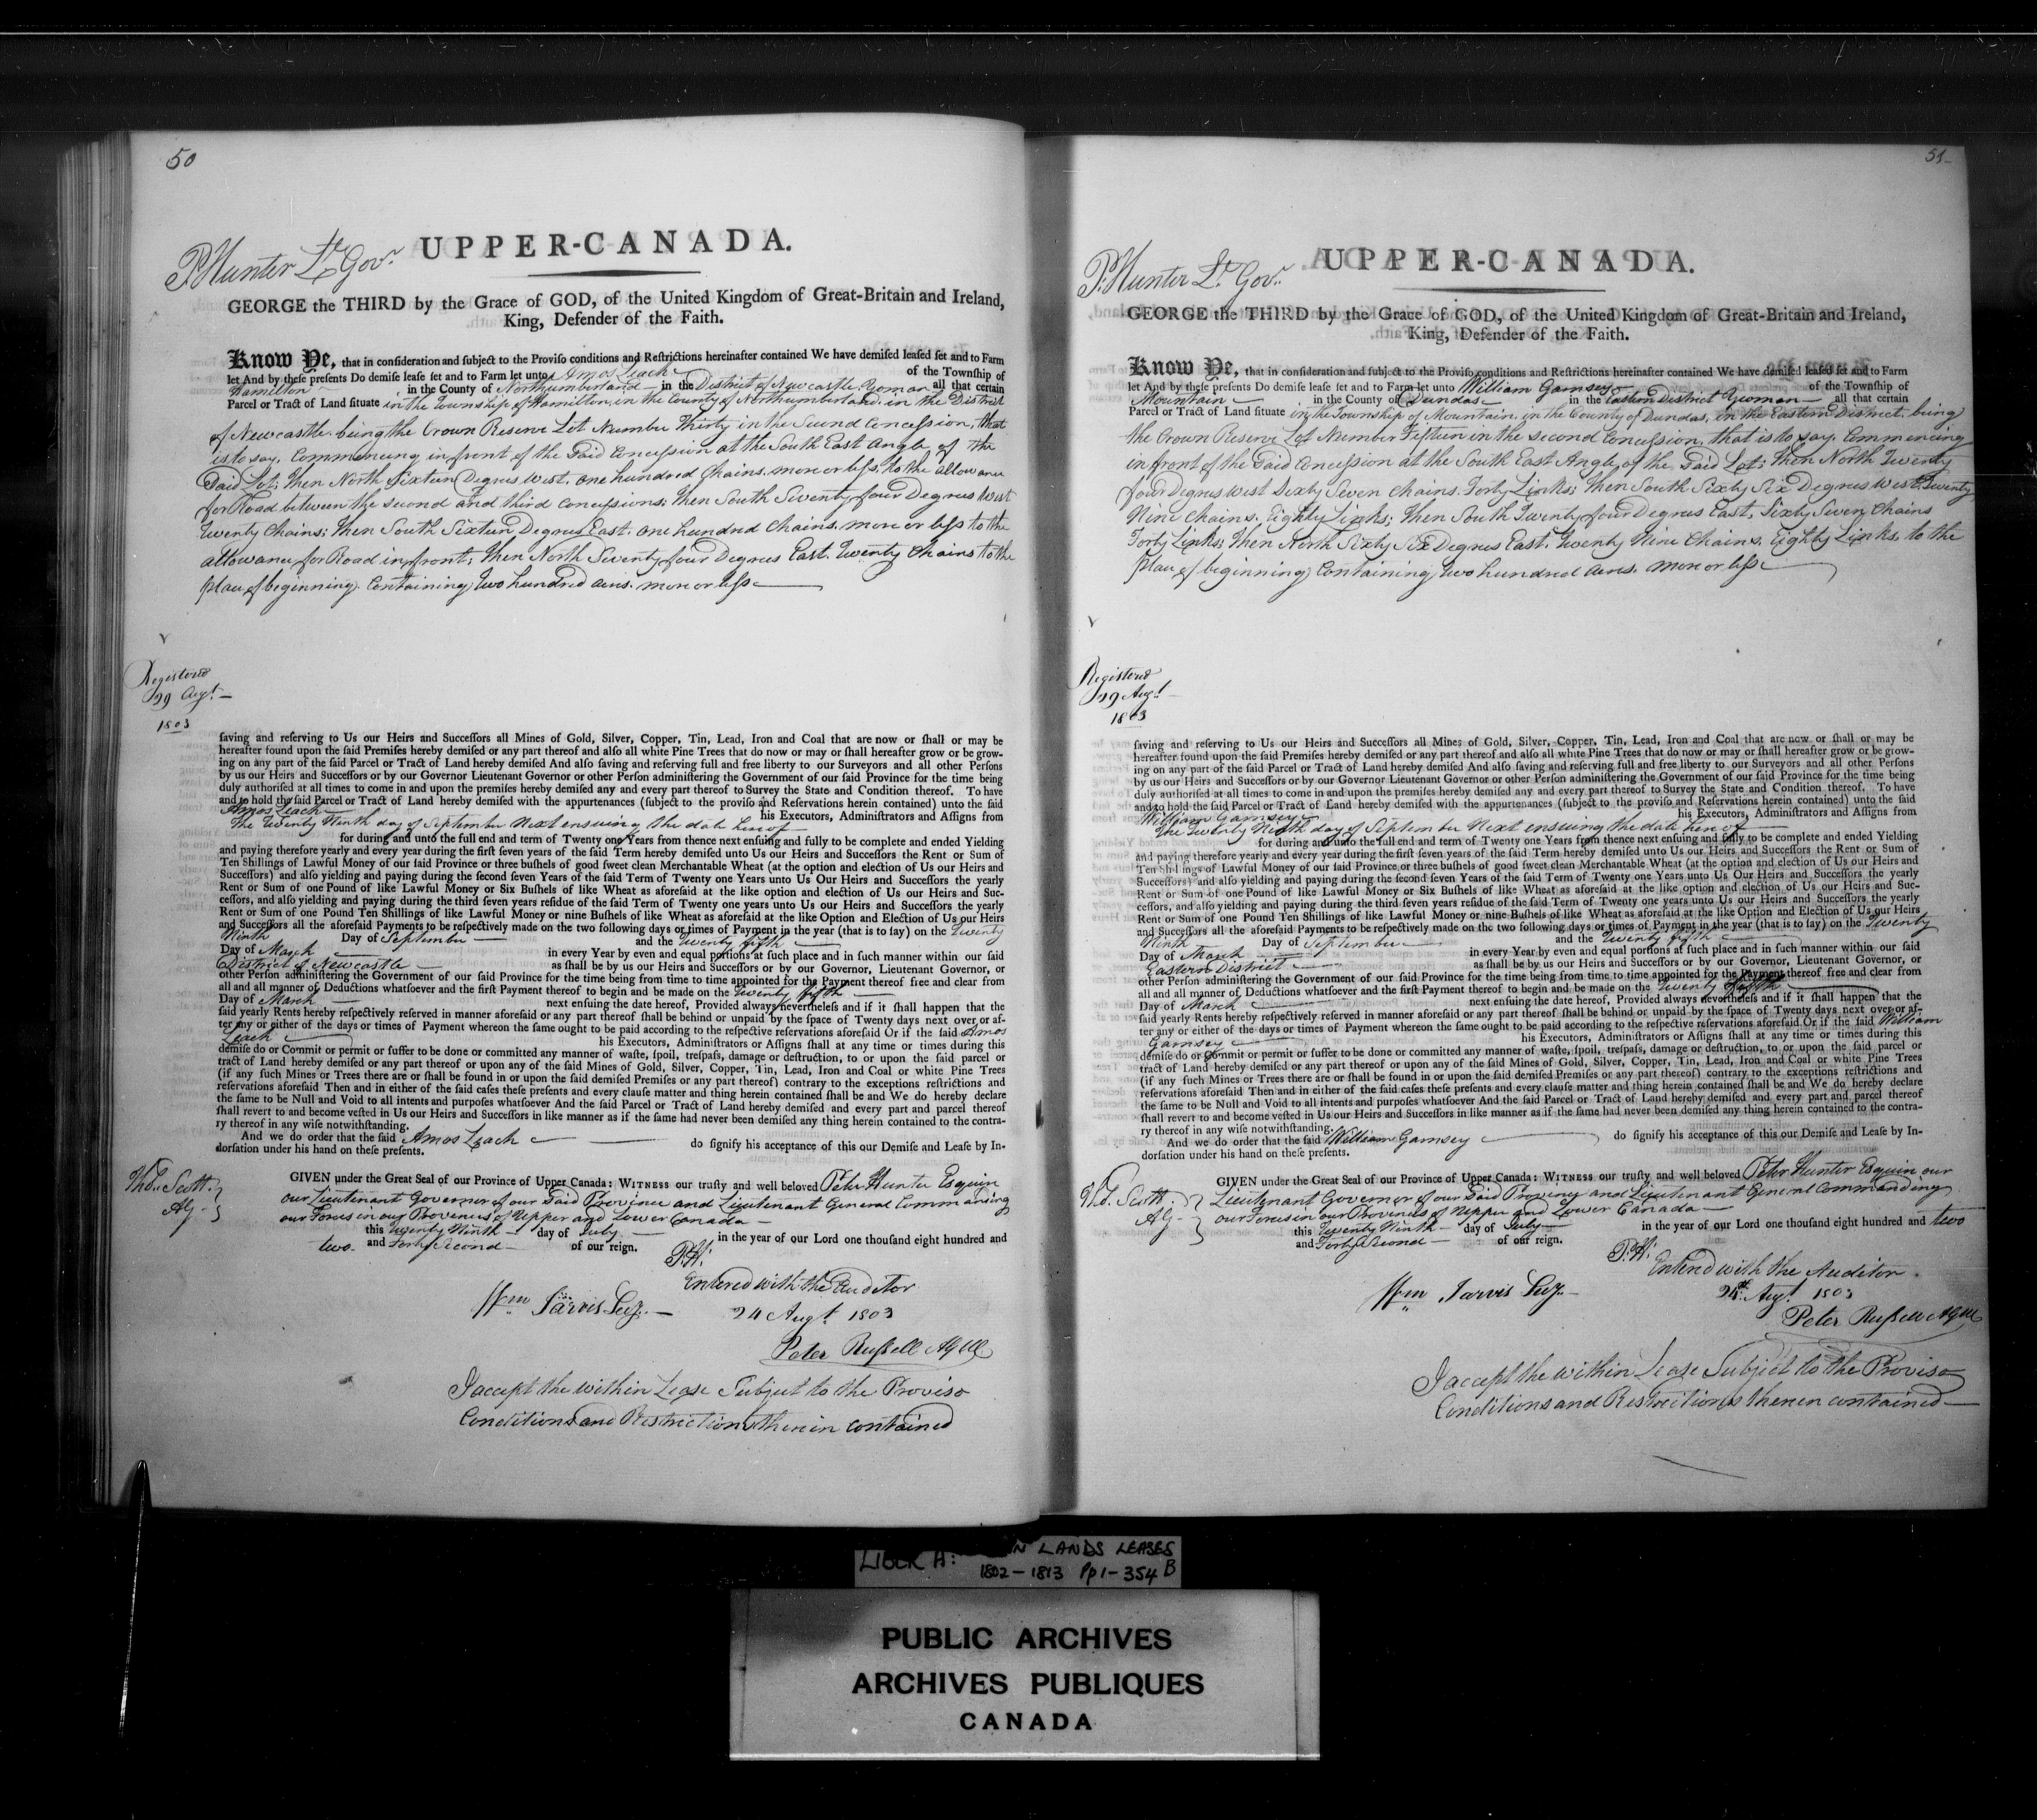 50
P Hunter Lt Govr.
UPPER-CANADA.
GEORGE the THIRD by the Grace of GOD, of the United Kingdom of Great-Britain and Ireland,
King, Defender of the Faith.
Know Ye, that in consideration and subject to the Proviso conditions and Restrictions hereinafter contained We have demised leased set and to Farm
let And by these presents Do demise lease set and to Farm let unto Amos Leach of the Township of
Hamilton in the County of Northumberland in the District of Newcastle Yeoman all that certain
Parcel or Tract of Land situate in the Township of Hamilton, in the County of Northumberland, in the District
of Newcastle, being the Crown Reserve Lot Number Thirty in the Second Concession, that
is to say, Commencing in front of the Said Concession at the South East Angle of the
Said Lot; then North Sixteen Degrees West, one hundred Chains, more or less, to the allowance
for Road between the second and third concessions; then South Seventy four Degrees West
Twenty Chains; then South Sixteen Degrees East, one hundred Chains, more or less to the
allowance for Road in front; then North Seventy four Degrees East, Twenty Chains to the
place of beginning, Containing two hundred acres, more or less
Registered
29 Augt.
1803
saving and reserving to Us our Heirs and Successors all Mines of Gold, Silver, Copper, Tin, Lead, Iron and Coal that are now or shall or may be
hereafter found upon the said Premises hereby demised or any part thereof and also all white Pine Trees that do now or may or shall hereafter grow or be grow-
ing on any part of the said Parcel or Tract of Land hereby demised And also saving and reserving full and free liberty to our Surveyors and all other Persons
by us our Heirs and Successors or by our Governor Lieutenant Governor or other Person administering the Government of our said Province for the time being
duly authorised at all times to come in and upon the premises hereby demised any and every part thereof to Survey the State and Condition thereof. To have
and to hold the said Parcel or Tract of Land hereby demised with the appurtenances (subject to the proviso and Reservations herein contained) unto the said
Amos Leach his Executors, Administrators and Assigns from
the Twenty Ninth day of September Next ensuing the date hereof
for during and unto the full end and term of Twenty one Years from thence next ensuing and fully to be complete and ended Yielding
and paying therefore yearly and every year during the first seven years of the said Term hereby demised unto Us our Heirs and Successors the Rent or Sum of
Ten Shillings of Lawful Money of our said Province or three bushels of good sweet clean Merchantable Wheat (at the option and election of Us our Heirs and
Successors) and also yielding and paying during the second seven Years of the said Term of Twenty one Years unto Us Our Heirs and Successors the yearly
Rent or Sum of one Pound of like Lawful Money or Six Bushels of like Wheat as aforesaid at the like option and election of Us our Heirs and Suc-
cessors, and also yielding and paying during the third seven years residue of the said Term of Twenty one years unto Us our Heirs and Successors the yearly
Rent or Sum of one Pound Ten Shillings of like Lawful Money or nine Bushels of like Wheat as aforesaid at the like Option and Election of Us our Heirs
and Successors all the aforesaid Payments to be respectively made on the two following days or times of Payment in the year (that is to say) on the Twenty
Ninth Day of September and the twenty fifth
Day of March in every Year by even and equal portions at such place and in such manner within our said
District of Newcastle as shall be by us our Heirs and Successors or by our Governor, Lieutenant Governor, or
other Person administering the Government of our said Province for the time being from time to time appointed for the Payment thereof free and clear from
all and all manner of Deductions whatsoever and the first Payment thereof to begin and be made on the twenty fifth
Day of March next ensuing the date hereof, Provided always nevertheless and if it shall happen that the
said yearly Rents hereby respectively reserved in manner aforesaid or any part thereof shall be behind or unpaid by the space of Twenty days next over or af-
ter any or either of the days or times of Payment whereon the same ought to be paid according to the respective reservations aforesaid Or if the said Amos
Leach his Executors, Administrators or Assigns shall at any time or times during this
demise do or Commit or permit or suffer to be done or committed any manner of waste, spoil, trespass, damage or destruction, to or upon the said parcel or
tract of Land hereby demised or any part thereof or upon any of the said Mines of Gold, Silver, Copper, Tin, Lead, Iron and Coal or white Pine Trees
(if any such Mines or Trees there are or shall be found in or upon the said demised Premises or any part thereof) contrary to the exceptions restrictions and
reservations aforesaid Then and in either of the said cases these presents and every clause matter and thing herein contained shall be and We do hereby declare
the same to be Null and Void to all intents and purposes whatsoever And the said Parcel or Tract of Land hereby demised and every part and parcel thereof
shall revert to and become vested in Us our Heirs and Successors in like manner as if the same had never been demised any thing herein contained to the contra-
ry thereof in any wise notwithstanding.
And we do order that the said Amos Leach do signify his acceptance of this our Demise and Lease by In-
dorsation under his hand on these presents.
Thos. Scott
AG
GIVEN under the Great Seal of our Province of Upper Canada: WITNESS our trusty and well beloved Peter Hunter Esquire
our Lieutenant Governor of our Said Province and Lieutenant General Commanding
our Forces in our Provinces of Upper and Lower Canada
this twenty Ninth day of July in the year of our Lord one thousand eight hundred and
two and Forty Second of our reign.
P.H.
Entered with the Auditor
Wm Jarvis Secy.
24 Augt 1803
Peter Russell AG
I accept the within Lease Subject to the Proviso
Conditions and Restrictions therein contained
51
P. Hunter Lt. Govr.
UPPER-CANADA.
GEORGE the THIRD by the Grace of GOD, of the United Kingdom of Great-Britain and Ireland,
King, Defender of the Faith.
Know Ye, that in consideration and subject to the Proviso conditions and Restrictions hereinafter contained We have demised leased set and to Farm
let And by these presents Do demise lease set and to Farm let unto William Gamsey of the Township of
Mountain in the County of Dundas in the Eastern District Yeoman all that certain
Parcel or Tract of Land situate in the Township of Mountain, in the County of Dundas, in the Eastern District, being
the Crown Reserve Lot Number Fifteen in the second Concession, that is to say, Commencing
in front of the Said Concession at the South East Angle of the Said Lot; then North Twenty
four Degrees West Sixty Seven Chains, Forty Links; then South Sixty Six Degrees West, Twenty
Nine Chains, Eighty Links; then South Twenty four Degrees East, Sixty Seven Chains
Forty Links; then North Sixty Six Degrees East, Twenty Nine Chains, Eighty Links, to the
place of beginning, Containing two hundred acres, more or less
Registered
29 Augt.
1803
saving and reserving to Us our Heirs and Successors all Mines of Gold, Silver, Copper, Tin, Lead, Iron and Coal that are now or shall or may be
hereafter found upon the said Premises hereby demised or any part thereof and also all white Pine Trees that do now or may or shall hereafter grow or be grow-
ing on any part of the said Parcel or Tract of Land hereby demised And also saving and reserving full and free liberty to our Surveyors and all other Persons
by us our Heirs and Successors or by our Governor Lieutenant Governor or other Person administering the Government of our said Province for the time being
duly authorised at all times to come in and upon the premises hereby demised any and every part thereof to Survey the State and Condition thereof, To have
and to hold the said Parcel or Tract of Land hereby demised with the appurtenances (subject to the proviso and Reservations herein contained) unto the said
William Gamsey his Executors, Administrators and Assigns from
the Twenty Ninth day of September Next ensuing the date hereof
for during and unto the full end and term of Twenty one Years from thence next ensuing and fully to be complete and ended Yielding
and paying therefore yearly and every year during the first seven years of the said Term hereby demised unto Us our Heirs and Successors the Rent or Sum of
Ten Shillings of Lawful Money of our said Province or three bushels of good sweet clean Merchantable Wheat (at the option and election of Us our Heirs and
Successors) and also yielding and paying during the second seven Years of the said Term of Twenty one Years unto Us Our Heirs and Successors the yearly
Rent or Sum of one Pound of like Lawful Money or Six Bushels of like Wheat as aforesaid at the like option and election of Us our Heirs and Suc-
cessors, and also yielding and paying during the third seven years residue of the said Term of Twenty one years unto Us our Heirs and Successors the yearly
Rent or Sum of one Pound Ten Shillings of like Lawful Money or nine Bushels of like Wheat as aforesaid at the like Option and Election of Us our Heirs
and Successors all the aforesaid Payments to be respectively made on the two following days or times of Payment in the year (that is to say) on the Twenty
Ninth Day of September and the twenty fifth
Day of March in every Year by even and equal portions at such place and in such manner within our said
Eastern District as shall be by us our Heirs and Successors or by our Governor, Lieutenant Governor, or
other Person administering the Government of our said Province for the time being from time to time appointed for the Payment thereof free and clear from
all and all manner of Deductions whatsoever and the first Payment thereof to begin and be made on the twenty fifth
Day of March next ensuing the date hereof, Provided always nevertheless and if it shall happen that the
said yearly Rents hereby respectively reserved in manner aforesaid or any part thereof shall be behind or unpaid by the space of Twenty days next over or af-
ter any or either of the days or times of Payment whereon the same ought to be paid according to the respective reservations aforesaid Or if the said William
Gamsey his Executors, Administrators or Assigns shall at any time or times during this
demise do or Commit or permit or suffer to be done or committed any manner of waste, spoil, trespass, damage or destruction, to or upon the said parcel or
tract of Land hereby demised or any part thereof or upon any of the said Mines of Gold, Silver, Copper, Tin, Lead, Iron and Coal or white Pine Trees
(if any such Mines or Trees there are or shall be found in or upon the said demised Premises or any part thereof) contrary to the exceptions restrictions and
reservations aforesaid Then and in either of the said cases these presents and every clause matter and thing herein contained shall be and We do hereby declare
the same to be Null and Void to all intents and purposes whatsoever And the said Parcel or Tract of Land hereby demised and every part and parcel thereof
shall revert to and become vested in Us our Heirs and Successors in like manner as if the same had never been demised any thing herein contained to the contra-
ry thereof in any wise notwithstanding.
And we do order that the said William Gamsey do signify his acceptance of this our Demise and Lease by In-
dorsation under his hand on these presents.
Th. Scott
AG
GIVEN under the Great Seal of our Province of Upper Canada: WITNESS our trusty and well beloved Peter Hunter Esquire our
Lieutenant Governor of our Said Province and Lieutenant General Commanding
our Forces in our Provinces of Upper and Lower Canada
this Twenty Ninth day of July in the year of our Lord one thousand eight hundred and two
and Forty Second of our reign.
P.H.
Entered with the Auditor
Wm Jarvis Secy.
24th Augt 1803
Peter Russell
I accept the within Lease Subject to the Proviso
Conditions and Restrictions therein contained
LIBER A: LANDS LEASES
1802-1813 Pp1-354 B
PUBLIC ARCHIVES
ARCHIVES PUBLIQUES
CANADA